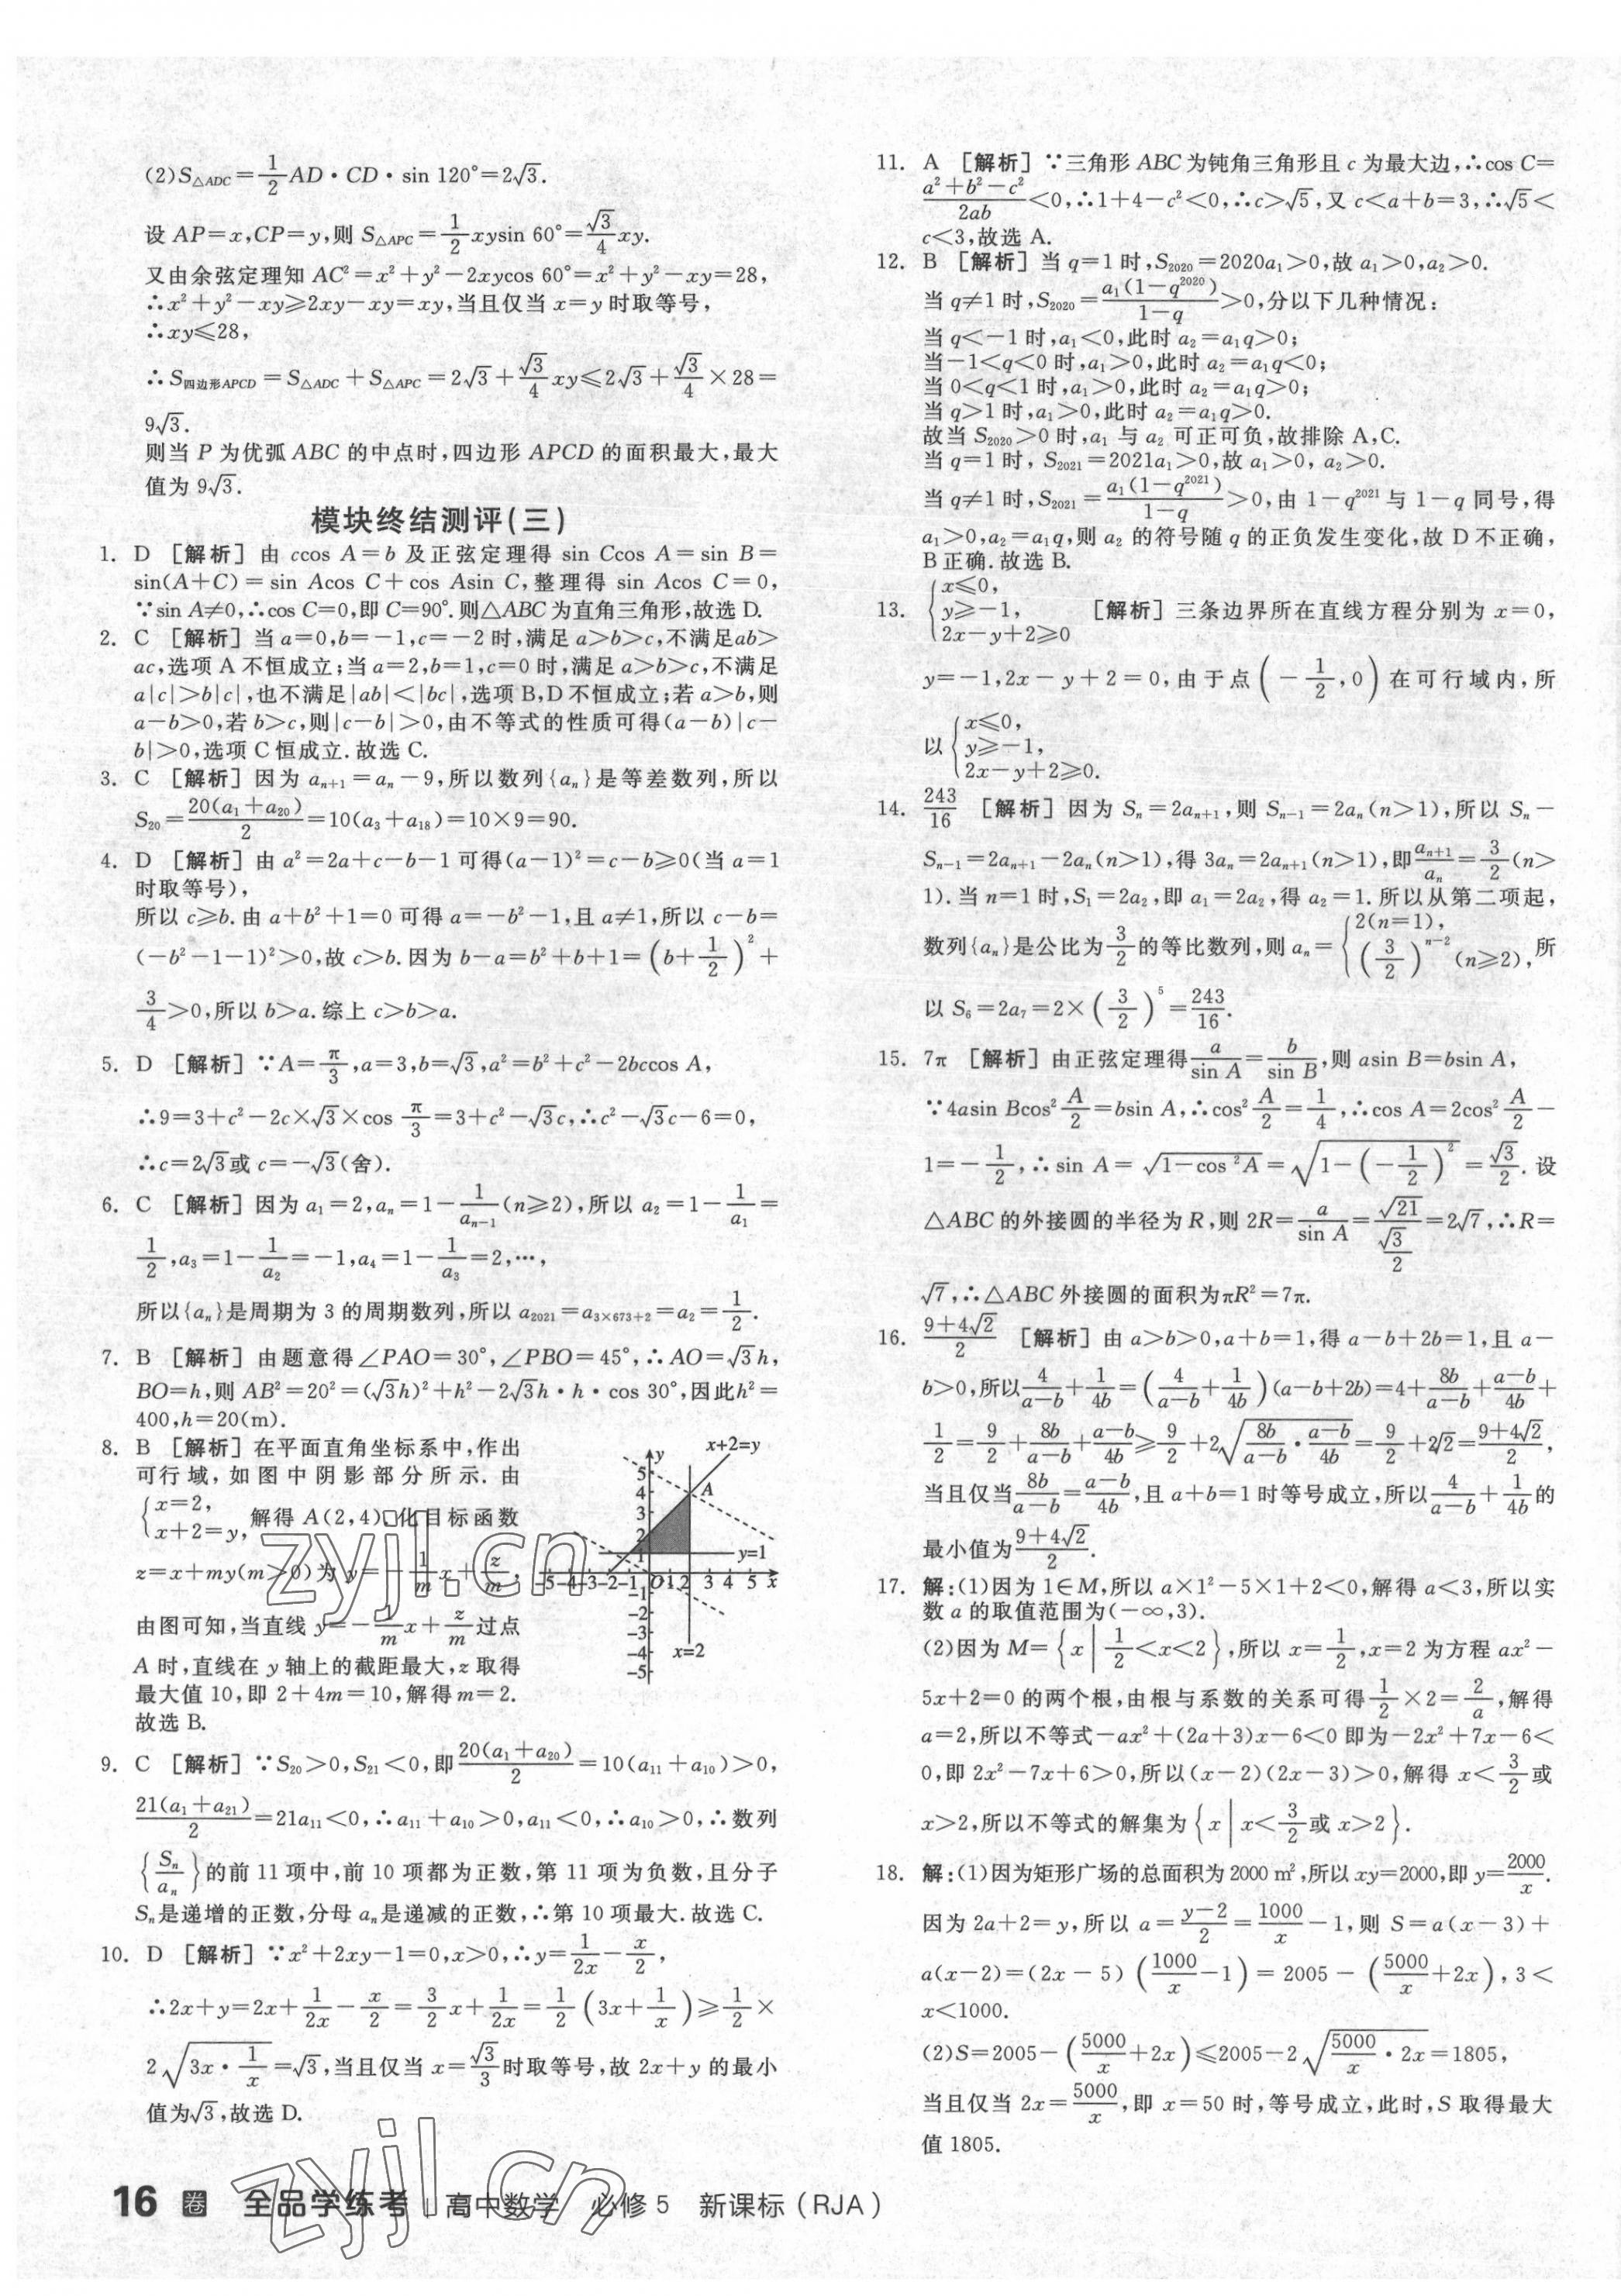 (2)S△ADC=1/2AD·CD·sin 120°=2√3.
设 AP=x,CP=y,则 S△APC=1/2xysin 60°=√3/4xy.
又由余弦定理知 AC²=x²+y²-2xycos 60°=x²+y²-xy=28,
∴x²+y²-xy≥2xy-xy=xy,当且仅当 x=y 时取等号,
∴xy≤28,
∴S四边形APCD=S△ADC+S△APC=2√3+√3/4xy≤2√3+√3/4×28=
9√3.
则当 P 为优弧 ABC 的中点时,四边形 APCD 的面积最大,最大
值为 9√3.
模块终结测评(三)
1. D [解析] 由 ccos A=b 及正弦定理得 sin Ccos A=sin B=
sin(A+C)=sin Acos C+cos Asin C,整理得 sin Acos C=0,
∵sin A≠0,∴cos C=0,即 C=90°.则△ABC 为直角三角形,故选 D.
2. C [解析] 当 a=0,b=-1,c=-2 时,满足 a>b>c,不满足ab>
ac,选项 A 不恒成立;当 a=2,b=1,c=0 时,满足 a>b>c,不满足
a|c|>b|c|,也不满足|ab|<|bc|,选项 B,D 不恒成立;若 a>b,则
a-b>0,若 b>c,则|c-b|>0,由不等式的性质可得(a-b)|c-
b|>0,选项 C 恒成立.故选 C.
3. C [解析] 因为 aₙ₊₁=aₙ-9,所以数列{aₙ}是等差数列,所以
S₂₀=20(a₁+a₂₀)/2=10(a₃+a₁₈)=10×9=90.
4. D [解析] 由 a²=2a+c-b-1 可得(a-1)²=c-b≥0(当 a=1
时取等号),
所以 c≥b.由 a+b²+1=0 可得 a=-b²-1,且 a≠1,所以 c-b=
(-b²-1-1)²>0,故 c>b.因为 b-a=b²+b+1=(b+1/2)²+
3/4>0,所以 b>a.综上 c>b>a.
5. D [解析] ∵A=π/3,a=3,b=√3,a²=b²+c²-2bccos A,
∴9=3+c²-2c×√3×cos π/3=3+c²-√3c,∴c²-√3c-6=0,
∴c=2√3或 c=-√3(舍).
6. C [解析] 因为 a₁=2,aₙ=1-1/aₙ₋₁(n≥2),所以 a₂=1-1/a₁=
1/2,a₃=1-1/a₂=-1,a₄=1-1/a₃=2,…,
所以{aₙ}是周期为 3 的周期数列,所以 a₂₀₂₁=a₃ₓ₆₇₃₊₂=a₂=1/2.
7. B [解析] 由题意得∠PAO=30°,∠PBO=45°,∴AO=√3h,
BO=h,则 AB²=20²=(√3h)²+h²-2√3h·h·cos 30°,因此h²=
400,h=20(m).
8. B [解析] 在平面直角坐标系中,作出
可行域,如图中阴影部分所示.由
{x=2,
x+2=y, 解得 A(2,4).化目标函数
z=x+my(m>0)为 y=-1/m x+z/m,
由图可知,当直线 y=-1/m x+z/m过点
A 时,直线在 y 轴上的截距最大,z 取得
最大值 10,即 2+4m=10,解得 m=2.
故选 B.
y
x+2=y
5
4
A
3
2
1
y=1
-5-4-3-2-1 O 1 2 3 4 5 x
-1
-2
-3
-4
-5
x=2
9. C [解析] ∵S₂₀>0,S₂₁<0,即20(a₁+a₂₀)/2=10(a₁₁+a₁₀)>0,
21(a₁+a₂₁)/2=21a₁₁<0,∴a₁₁+a₁₀>0,a₁₁<0,∴a₁₀>0,∴数列
{Sₙ/aₙ}的前 11 项中,前 10 项都为正数,第 11 项为负数,且分子
Sₙ是递增的正数,分母 aₙ是递减的正数,∴第 10 项最大.故选 C.
10. D [解析] ∵x²+2xy-1=0,x>0,∴y=1/2x-x/2,
∴2x+y=2x+1/2x-x/2=3/2x+1/2x=1/2(3x+1/x)≥1/2×
2√(3x·1/x)=√3,当且仅当 x=√3/3时取等号,故 2x+y 的最小
值为√3,故选 D.
11. A [解析] ∵三角形 ABC 为钝角三角形且 c 为最大边,∴cos C=
(a²+b²-c²)/2ab<0,∴1+4-c²<0,∴c>√5,又 c<a+b=3,∴√5<
c<3,故选 A.
12. B [解析] 当 q=1 时,S₂₀₂₀=2020a₁>0,故 a₁>0,a₂>0.
当 q≠1 时,S₂₀₂₀=a₁(1-q²⁰²⁰)/(1-q)>0,分以下几种情况:
当 q<-1 时,a₁<0,此时 a₂=a₁q>0;
当-1<q<0 时,a₁>0,此时 a₂=a₁q<0;
当 0<q<1 时,a₁>0,此时 a₂=a₁q>0;
当 q>1 时,a₁>0,此时 a₂=a₁q>0.
故当 S₂₀₂₀>0 时,a₁ 与 a₂ 可正可负,故排除 A,C.
当 q=1 时,S₂₀₂₁=2021a₁>0,故 a₁>0,a₂>0.
当 q≠1 时,S₂₀₂₁=a₁(1-q²⁰²¹)/(1-q)>0,由 1-q²⁰²¹与 1-q 同号,得
a₁>0,a₂=a₁q,则 a₂ 的符号随 q 的正负发生变化,故 D 不正确,
B 正确.故选 B.
13. {x≤0,
y≥-1,
2x-y+2≥0 [解析] 三条边界所在直线方程分别为 x=0,
y=-1,2x-y+2=0,由于点(-1/2,0)在可行域内,所
以{x≤0,
y≥-1,
2x-y+2≥0.
14. 243/16 [解析] 因为 Sₙ=2aₙ₊₁,则 Sₙ₋₁=2aₙ(n>1),所以 Sₙ-
Sₙ₋₁=2aₙ₊₁-2aₙ(n>1),得 3aₙ=2aₙ₊₁(n>1),即aₙ₊₁/aₙ=3/2(n>
1).当 n=1 时,S₁=2a₂,即 a₁=2a₂,得 a₂=1.所以从第二项起,
数列{aₙ}是公比为3/2的等比数列,则 aₙ={2(n=1),
(3/2)ⁿ⁻²(n≥2), 所
以 S₆=2a₇=2×(3/2)⁵=243/16.
15. 7π [解析] 由正弦定理得a/sin A=b/sin B,则 asin B=bsin A,
∵4asin Bcos²A/2=bsin A,∴cos²A/2=1/4,∴cos A=2cos²A/2-
1=-1/2,∴sin A=√(1-cos²A)=√(1-(-1/2)²)=√3/2.设
△ABC 的外接圆的半径为 R,则 2R=a/sin A=√21/(√3/2)=2√7,∴R=
√7,∴△ABC 外接圆的面积为πR²=7π.
16. (9+4√2)/2 [解析] 由 a>b>0,a+b=1,得 a-b+2b=1,且 a-
b>0,所以4/(a-b)+1/4b=(4/(a-b)+1/4b)(a-b+2b)=4+8b/(a-b)+(a-b)/4b+
1/2=9/2+8b/(a-b)+(a-b)/4b≥9/2+2√(8b/(a-b)·(a-b)/4b)=9/2+2√2=(9+4√2)/2,
当且仅当8b/(a-b)=(a-b)/4b,且 a+b=1 时等号成立,所以4/(a-b)+1/4b的
最小值为(9+4√2)/2.
17. 解:(1)因为 1∈M,所以 a×1²-5×1+2<0,解得 a<3,所以实
数 a 的取值范围为(-∞,3).
(2)因为 M={x|1/2<x<2},所以 x=1/2,x=2 为方程 ax²-
5x+2=0 的两个根,由根与系数的关系可得1/2×2=2/a,解得
a=2,所以不等式-ax²+(2a+3)x-6<0 即为-2x²+7x-6<
0,即 2x²-7x+6>0,所以(x-2)(2x-3)>0,解得 x<3/2或
x>2,所以不等式的解集为{x|x<3/2或 x>2}.
18. 解:(1)因为矩形广场的总面积为 2000 m²,所以 xy=2000,即 y=2000/x.
因为 2a+2=y,所以 a=(y-2)/2=1000/x-1,则 S=a(x-3)+
a(x-2)=(2x-5)(1000/x-1)=2005-(5000/x+2x),3<
x<1000.
(2)S=2005-(5000/x+2x)≤2005-2√(5000/x·2x)=1805,
当且仅当 2x=5000/x,即 x=50 时,等号成立,此时,S 取得最大
值 1805.
16 卷 全品学练考 | 高中数学 必修 5 新课标(RJA)
zyjl.cn
zyjl.cn